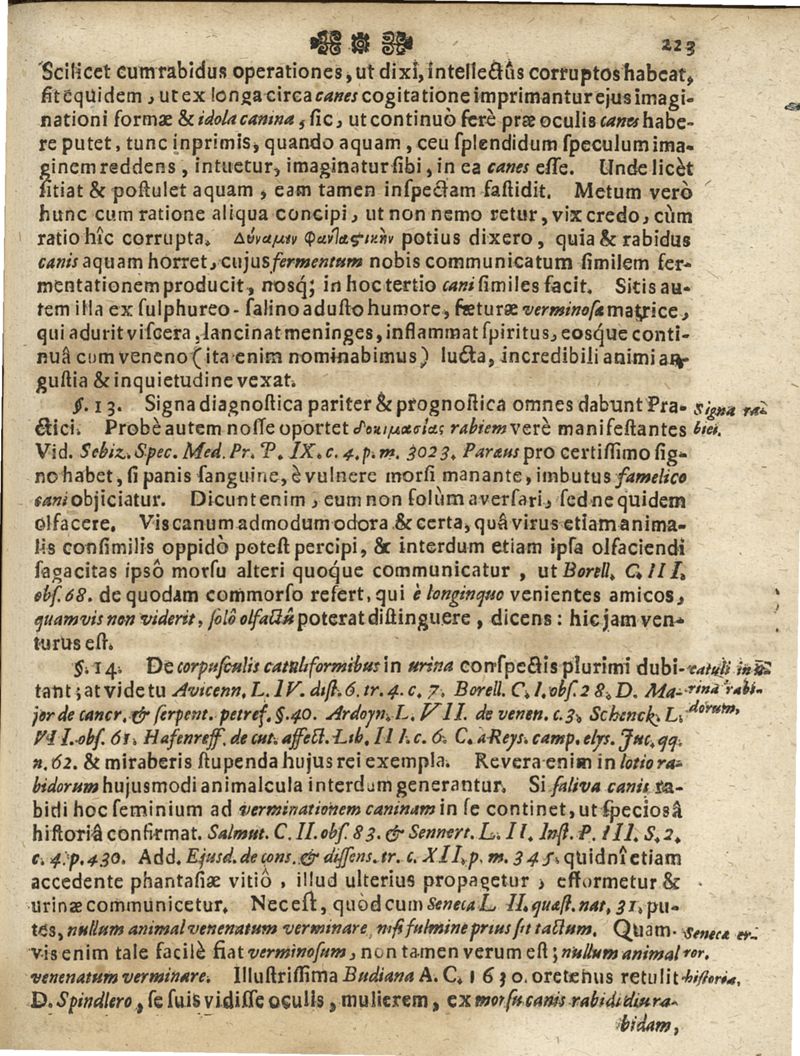 223
Scilicet cum rabidus operationes, ut dixi, intellectûs corruptos habeat,
fit equidem, ut ex longa circa canes cogitatione imprimantur ejus imagi-
nationi formæ & idola canina, sic, ut continuò ferè præ oculis canes habe-
re putet, tunc inprimis, quando aquam, ceu splendidum speculum ima-
ginem reddens, intuetur, imaginatur sibi, in ea canes esse. Unde licèt
sitiat & postulet aquam, eam tamen inspectam fastidit. Metum verò
hunc cum ratione aliqua concipi, ut non nemo retur, vix credo, cùm
ratio hîc corrupta. Δύναμιν Φανλαςικὴν potius dixero, quia & rabidus
canis aquam horret, cujus fermentum nobis communicatum similem fer-
mentationem producit, nosq; in hoc tertio cani similes facit. Sitis au-
tem illa ex sulphureo-salino adusto humore, fœturæ verminosa matrice,
qui adurit viscera, lancinat meninges, inflammat spiritus, eosque conti-
nuâ cum veneno (ita enim nominabimus) lucta, incredibili animi an-
gustia & inquietudine vexat.
§. 13. Signa diagnostica pariter & prognostica omnes dabunt Pra-
Signa ra-
ctici. Probè autem nosse oportet δοκιμασίας rabiem verè manifestantes
biei.
Vid. Sebiz. Spec. Med. Pr. P. IX. c. 4. p. m. 3023. Paræus pro certissimo sig-
no habet, si panis sanguine, è vulnere morsi manante, imbutus famelico
cani objiciatur. Dicunt enim, eum non solùm aversari, sed ne quidem
olfacere. Vis canum admodum odora & certa, quâ virus etiam anima-
lis consimilis oppidò potest percipi, & interdum etiam ipsa olfaciendi
sagacitas ipsô morsu alteri quoque communicatur, ut Borell. C. III.
obs. 68. de quodam commorso refert, qui è longinquo venientes amicos,
quamvis non viderit, solô olfactû poterat distinguere, dicens: hic jam ven-
turus est.
§. 14. De corpusculis catuliformibus in urina conspectis plurimi dubi-
catuli in u-
tant; at vide tu Avicenn. L. IV. dist. 6. tr. 4. c. 7. Borell. C. I. obs. 28. D. Ma-
rina rabi-
jor de cancr. & serpent. petref. §. 40. Ardoyn. L. VII. de venen. c. 3. Schenck. L.
dorum.
VII. obs. 61. Hafenreff. de cut. affect. Lib. III. c. 6. C. a Reys. camp. elys. Juc. qq.
n. 62. & miraberis stupenda hujus rei exempla. Revera enim in lotio ra-
bidorum hujusmodi animalcula interdum generantur. Si saliva canis ra-
bidi hoc seminium ad verminationem caninam in se continet, ut speciosâ
historiâ confirmat. Salmut. C. II. obs. 83. & Sennert. L. II. Inst. P. III. S. 2.
c. 4. p. 430. Add. Ejusd. de cons. & dissens. tr. c. XII. p. m. 345. quidnî etiam
accedente phantasiæ vitiô, illud ulterius propagetur, efformetur &
urinæ communicetur. Nec est, quòd cum Seneca L. II. quæst. nat. 31. pu-
tes, nullum animal venenatum verminare, nisi fulmine prius sit tactum. Quam-
Seneca er-
vis enim tale facilè fiat verminosum, non tamen verum est; nullum animal
ror.
venenatum verminare. Illustrissima Budiana A. C. 1630. oretenus retulit
historia.
D. Spindlero, se suis vidisse oculis, mulierem, ex morsu canis rabidi diu ra-
bidam,